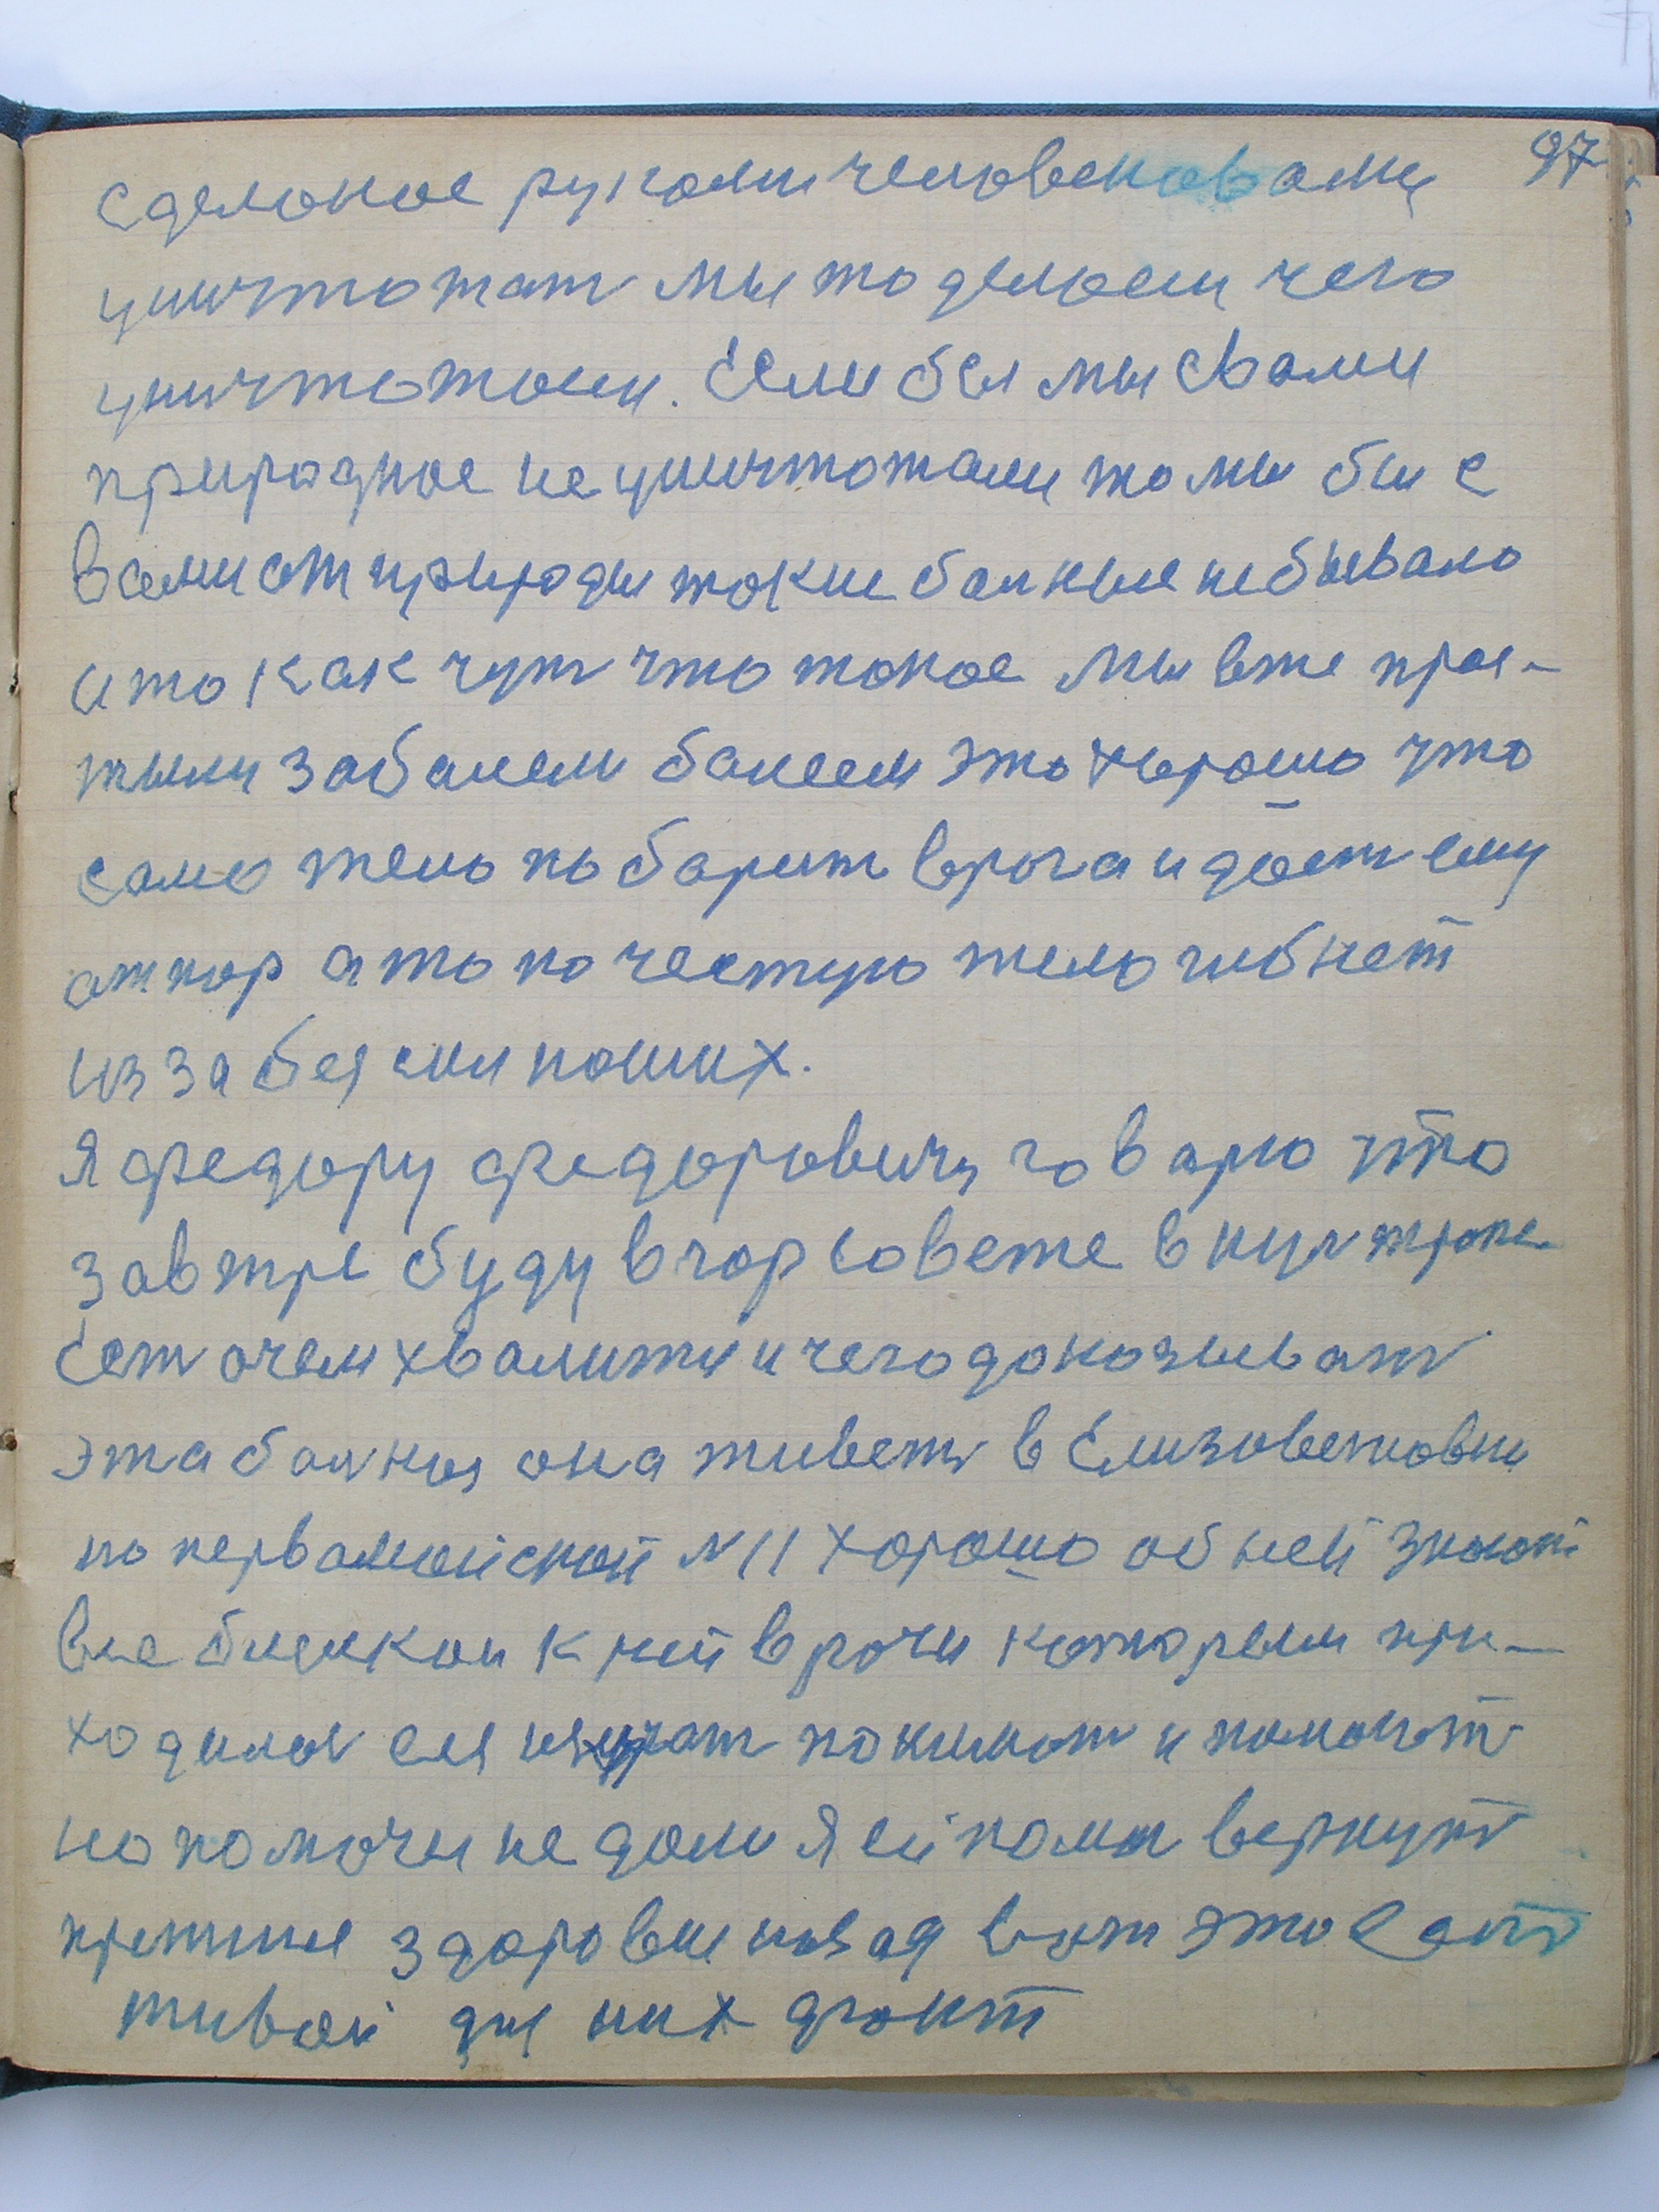 97
сделоное рукоми человековами
уничтожат мы то делоем чего
уничтожоем. Если бы мы с вами
природное не уничтожали то мы бы с
вами от природы такие бальные не бывало
и то как чут что токое мы вже про-
тыли забалели балеем это хорошо что
само тело по барит врага и доет ему
атпор а то по честую тело гибнет
из за бея сил ноших.
Я федору федоровичу говарю что
завтре буду в горсовете в культпро
Ест очем хвалитй и чего доказыват
эта балноя она живеть в Елизоветовки
по первамойской N 11 хорошо об ней знают
все близкои к ней врочи которым при-
ходилос ея изучат понимат и помогат
но помочи не дали Я ей помог вернут
прежние здоровие назад вот это ест
живой для них факт